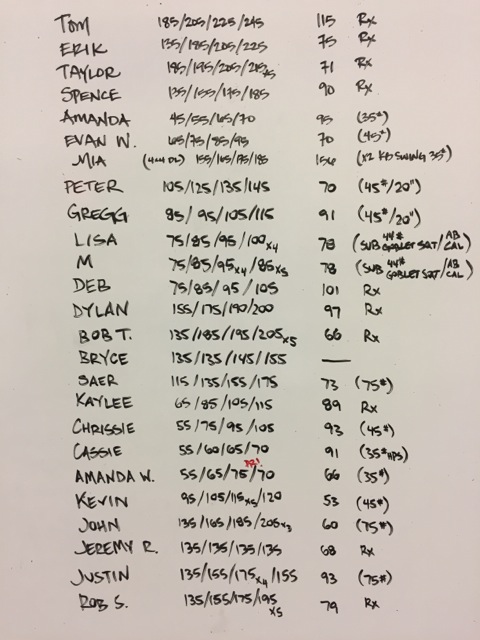 TOM 185/205/225/245 115 Rx
ERIK 135/185/205/225 75 Rx
TAYLOR 185/195/205/215x5 71 Rx
SPENCE 135/155/175/185 90 Rx
AMANDA 45/55/65/70 95 (35#)
EVAN W. 65/75/85/95 70 (45#)
MIA 155/165/175/185 156 (x2 KB SWING 35#)
PETER 105/125/135/145 70 (45#/20")
GREGG 85/95/105/115 91 (45#/20")
LISA 75/85/95/100x4 78 (SUB 44# GOBLET SQT/AB CAL)
M 75/85/95x4/85x5 78 (SUB 44# GOBLET SQT/AB CAL)
DEB 75/85/95/105 101 Rx
DYLAN 155/175/190/200 97 Rx
BOB T. 135/185/195/205x5 66 Rx
BRYCE 135/135/145/155 —
SAER 115/135/155/175 73 (75#)
KAYLEE 65/85/105/115 89 Rx
CHRISSIE 55/75/95/105 93 (45#)
CASSIE 55/60/65/70 91 (35# HPS)
AMANDA W. 55/65/75/70 66 (35#)
KEVIN 95/105/115x5/120 53 (45#)
JOHN 135/165/185/205x3 60 (75#)
JEREMY R. 135/135/135/135 68 Rx
JUSTIN 135/155/175x4/155 93 (75#)
ROB S. 135/155/175/195x5 79 Rx